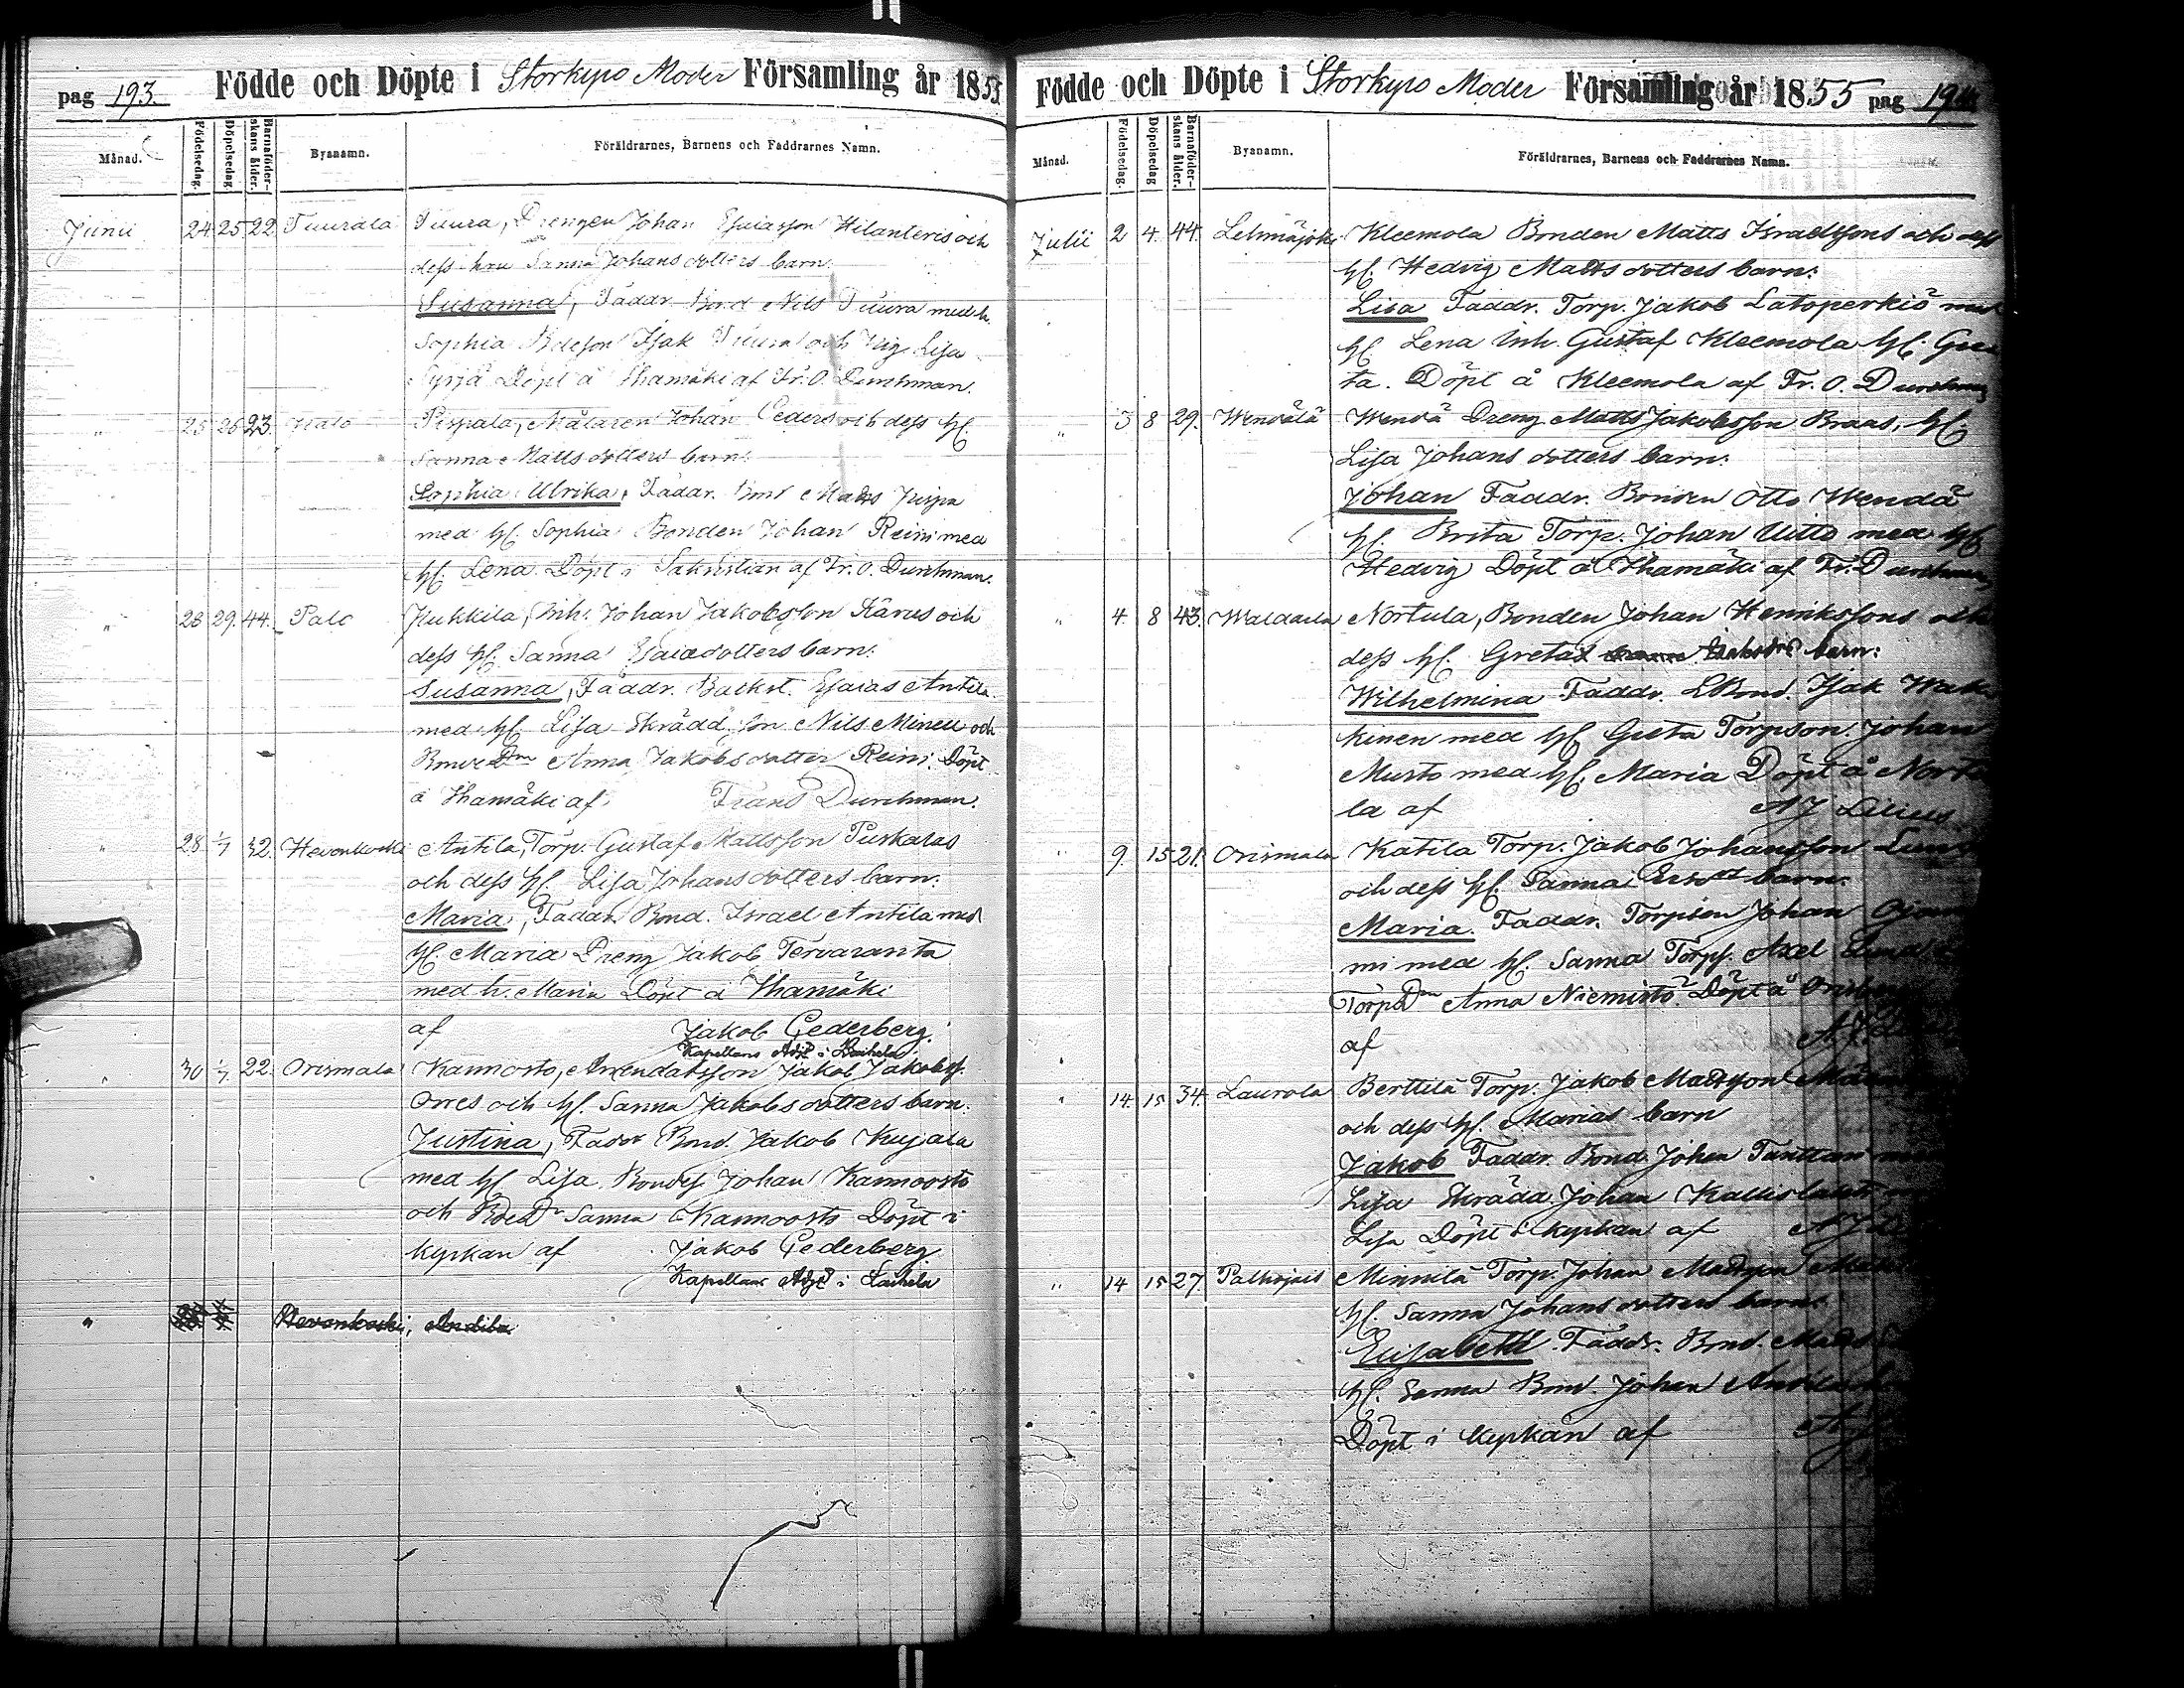 pag 193. Födde och Döpte i Storkyro Moder Församling år 1855
Månad. Födelsedag. Döpelsedag. Barnaföderskans ålder. Byanamn. Föräldrarnes, Barnens och Faddrarnes Namn.
Junii 24 25 22 Tuurala Tuura, Drengen Johan Esaiasson Hilanteris och
dess hru Sanna Johansdotters barn:
Susanna, Faddr. Bond Nils Tuura med h.
Sophia Isak Tuura och Pig. Lisa
Döpt å Ihamäki af Fr. O. Durchman.
" 25 26 23. Palo, Målaren Johan Ceders och dess H.
Sanna Mattsdotters barn:
Sophia Ulrika, Faddr. Bond Matts
med H. Sophia Bonden Johan Reini med
H. Lena. Döpt i Sakristian af Fr. O. Durchman.
" 28 29. 44. Palo Kukkila, Inh. Johan Jakobsson Karus och
dess H. Sanna Esaiaedotters barn:
Susanna, Faddr. Backst. Esaias Antila
med H. Lisa Skrädd. son Nils Mineu och
Anna Jakobsdotter Reini. Döpt
å Ihamäki af Frans Durchman.
" 28 1/7 32. Hevonkoski Antila, Torp. Gustaf Mattsson Puskalas
och dess H. Lisa Johansdotters barn:
Maria, Faddr. Bond. Israel Antila med
H. Maria Dreng Jakob Tervaranta
med h. Maria Döpt å Ihamäki
af Jakob Cederberg.
Kapellans Adj. i Laihela
" 30 1/7 22. Orismala Kannosto, Arendatsson Jakob Jakobss.
Orres och H. Sanna Jakobsdotters barn.
Justina, Faddr Bond. Jakob Kujala
med H. Lisa. Bondes. Johan Kannoosto
och Sanna Kannoosto Döpt i
kyrkan af Jakob Cederberg
Kapellans Adj. i Laihela
" Hevonkoski, Andila.
Födde och Döpte i Storkyro Moder Församling år 1855 pag 194
Månad. Födelsedag. Döpelsedag Barnaföderskans ålder. Byanamn. Föräldrarnes, Barnens och Faddrarnes Namn.
Julii 2 4. 44. Lehmäjoki Kleemola Bonden Matts Israelssons och dess
H. Hedvig Mattsdotters barn:
Lisa Faddr. Torp. Jakob Latoperkiö med
H. Lena Inh. Gustaf Kleemola H. Gre
ta. Döpt å Kleemola af Fr. O. Durchman
" 3 8 29. Wendälä Wendä Dreng Matts Jakobsson Braas, H.
Lisa Johansdotters barn:
Johan Faddr. Bonden Otto Wendä
H. Brita Torp. Johan Uitto med H.
Hedvig Döpt å Ihamäki af Fr. Durchman
" 4. 8 43. Waldarla Nortula, Bonden Johan Henrikssons och
dess H. Gretas barn:
Wilhelmina Faddr. LBond. Isak Wak
kinen med H. Greta Torpson. Johan
Musto med H. Maria Döpt å Nortu
la af A J Lilius
" 9. 15 21. Orismala Katila Torp. Jakob Johansson
och dess H. Sanna barn.
Maria. Faddr. Torpson Johan
mi med H. Sanna Torps. Axel
Torpd Anna Niemistö Döpt å
af
" 14. 15 34. Laurola Berttilä Torp. Jakob Mattsson
och dess H. Marias barn
Jakob Faddr. Bond. Johan Tanttari
Lisa Skrädd. Johan
Lisa Döpt i kyrkan af A J
" 14 15 27. Palhojais Minnilä Torp. Johan Mattsson
H. Sanna Johansdotters barn:
Elisabeth. Faddr. Bond. Matts
H. Sanna Bond. Johan
Döpt i kyrkan af